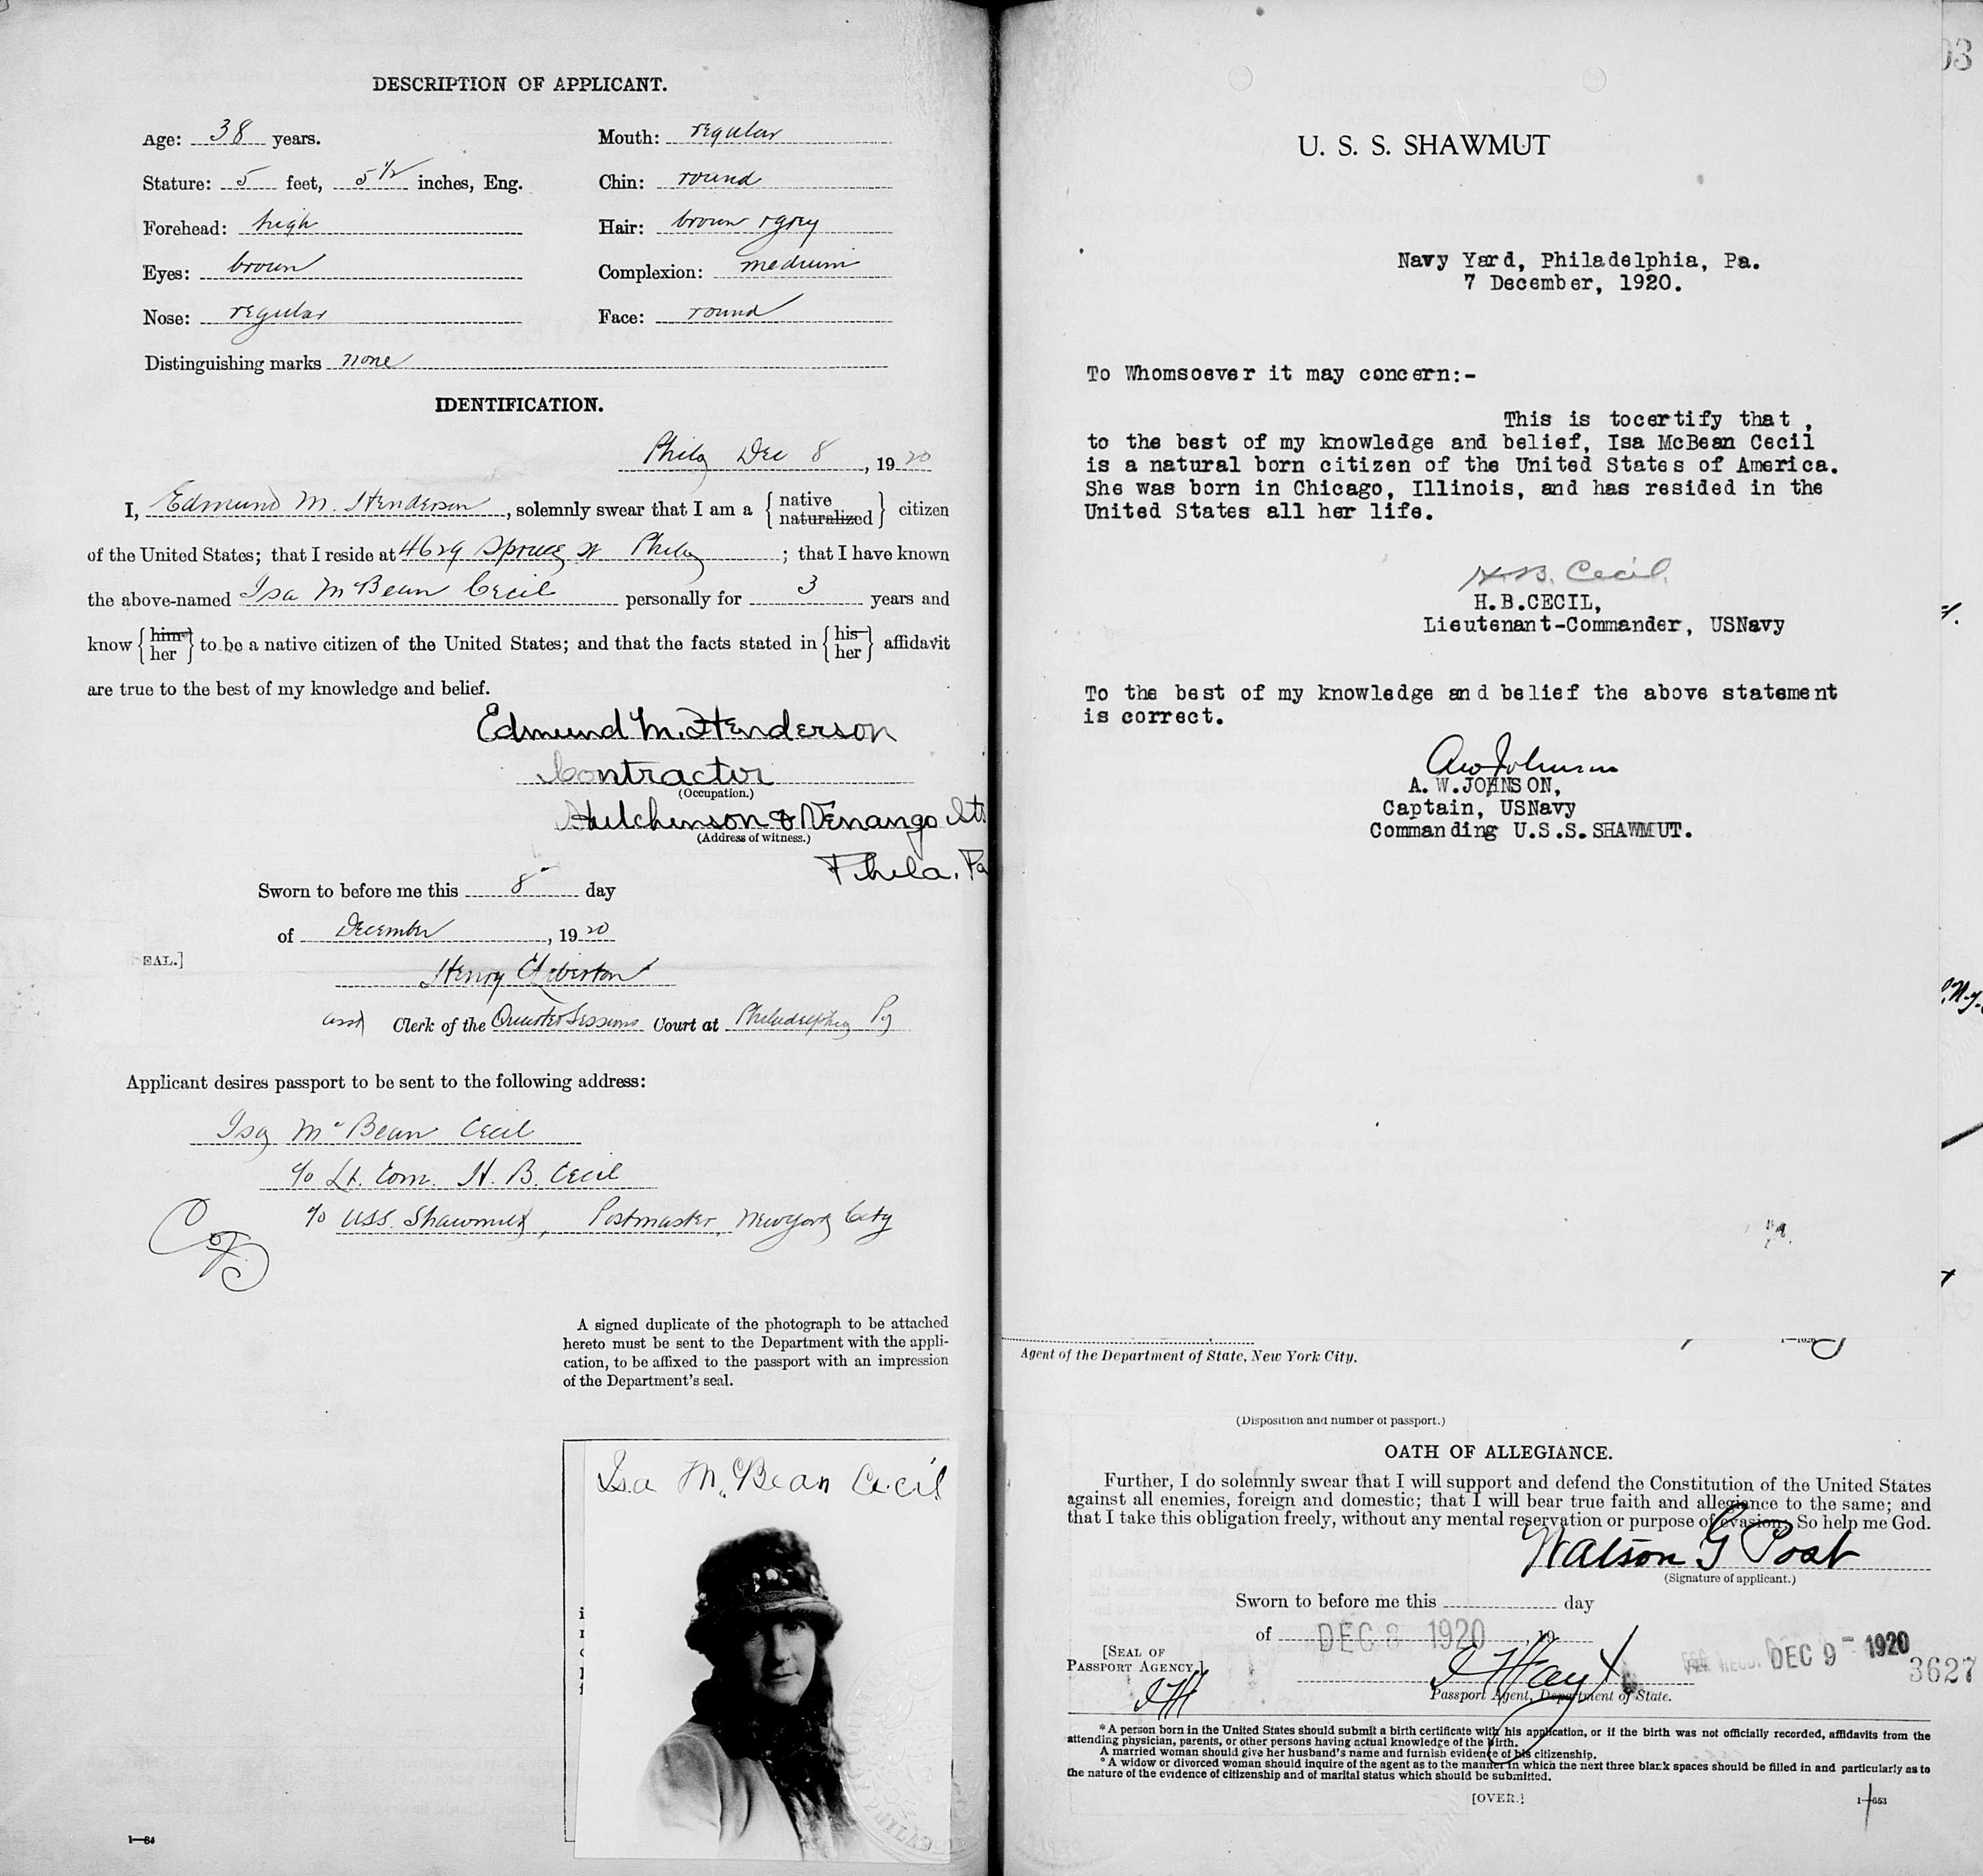 DESCRIPTION OF APPLICANT.
Age: 38 years.
Mouth: regular
Stature: 5 feet, 5 1/2 inches, Eng.
Chin: round
Forehead: high
Hair: brown & grey
Eyes: brown
Complexion: medium
Nose: regular
Face: round
Distinguishing marks none
IDENTIFICATION.
Phila Dec 8, 1920
I, Edmund M. Henderson, solemnly swear that I am a {native naturalized} citizen
of the United States; that I reside at 4629 Spruce st Phila; that I have known
the above-named Isa McBean Cecil personally for 3 years and
know {him her} to be a native citizen of the United States; and that the facts stated in {his her} affidavit
are true to the best of my knowledge and belief.
Edmund M. Henderson
Contractor
(Occupation.)
Hutchinson & Venango Sts
(Address of witness.)
Phila. Pa
Sworn to before me this 8 day
of December, 1920
EAL.]
Henry
asst Clerk of the Quarter Sessions Court at Philadelphia Pa
Applicant desires passport to be sent to the following address:
Isa McBean Cecil
c/o Lt. Com. H. B. Cecil
c/o USS. Shawmut, Postmaster, New York City
A signed duplicate of the photograph to be attached
hereto must be sent to the Department with the appli-
cation, to be affixed to the passport with an impression
of the Department's seal.
Isa McBean Cecil
1—84
U. S. S. SHAWMUT
Navy Yard, Philadelphia, Pa.
7 December, 1920.
To Whomsoever it may concern:-
This is tocertify that ,
to the best of my knowledge and belief, Isa McBean Cecil
is a natural born citizen of the United States of America.
She was born in Chicago, Illinois, and has resided in the
United States all her life.
H.B. Cecil
H.B.CECIL,
Lieutenant-Commander, USNavy
To the best of my knowledge and belief the above statement
is correct.
AW Johnson
A.W.JOHNSON,
Captain, USNavy
Commanding U.S.S.SHAWMUT.
Agent of the Department of State, New York City.
(Disposition and number of passport.)
OATH OF ALLEGIANCE.
Further, I do solemnly swear that I will support and defend the Constitution of the United States
against all enemies, foreign and domestic; that I will bear true faith and allegiance to the same; and
that I take this obligation freely, without any mental reservation or purpose of evasion: So help me God.
Watson G Post
(Signature of applicant.)
Sworn to before me this day
of DEC 8 1920, 19
[SEAL OF
PASSPORT AGENCY.]
RECD. DEC 9 - 1920
3627
Passport Agent, Department of State.
*A person born in the United States should submit a birth certificate with his application, or if the birth was not officially recorded, affidavits from the
attending physician, parents, or other persons having actual knowledge of the birth.
A married woman should give her husband's name and furnish evidence of his citizenship.
°A widow or divorced woman should inquire of the agent as to the manner in which the next three blank spaces should be filled in and particularly as to
the nature of the evidence of citizenship and of marital status which should be submitted.
[OVER.]
1—653